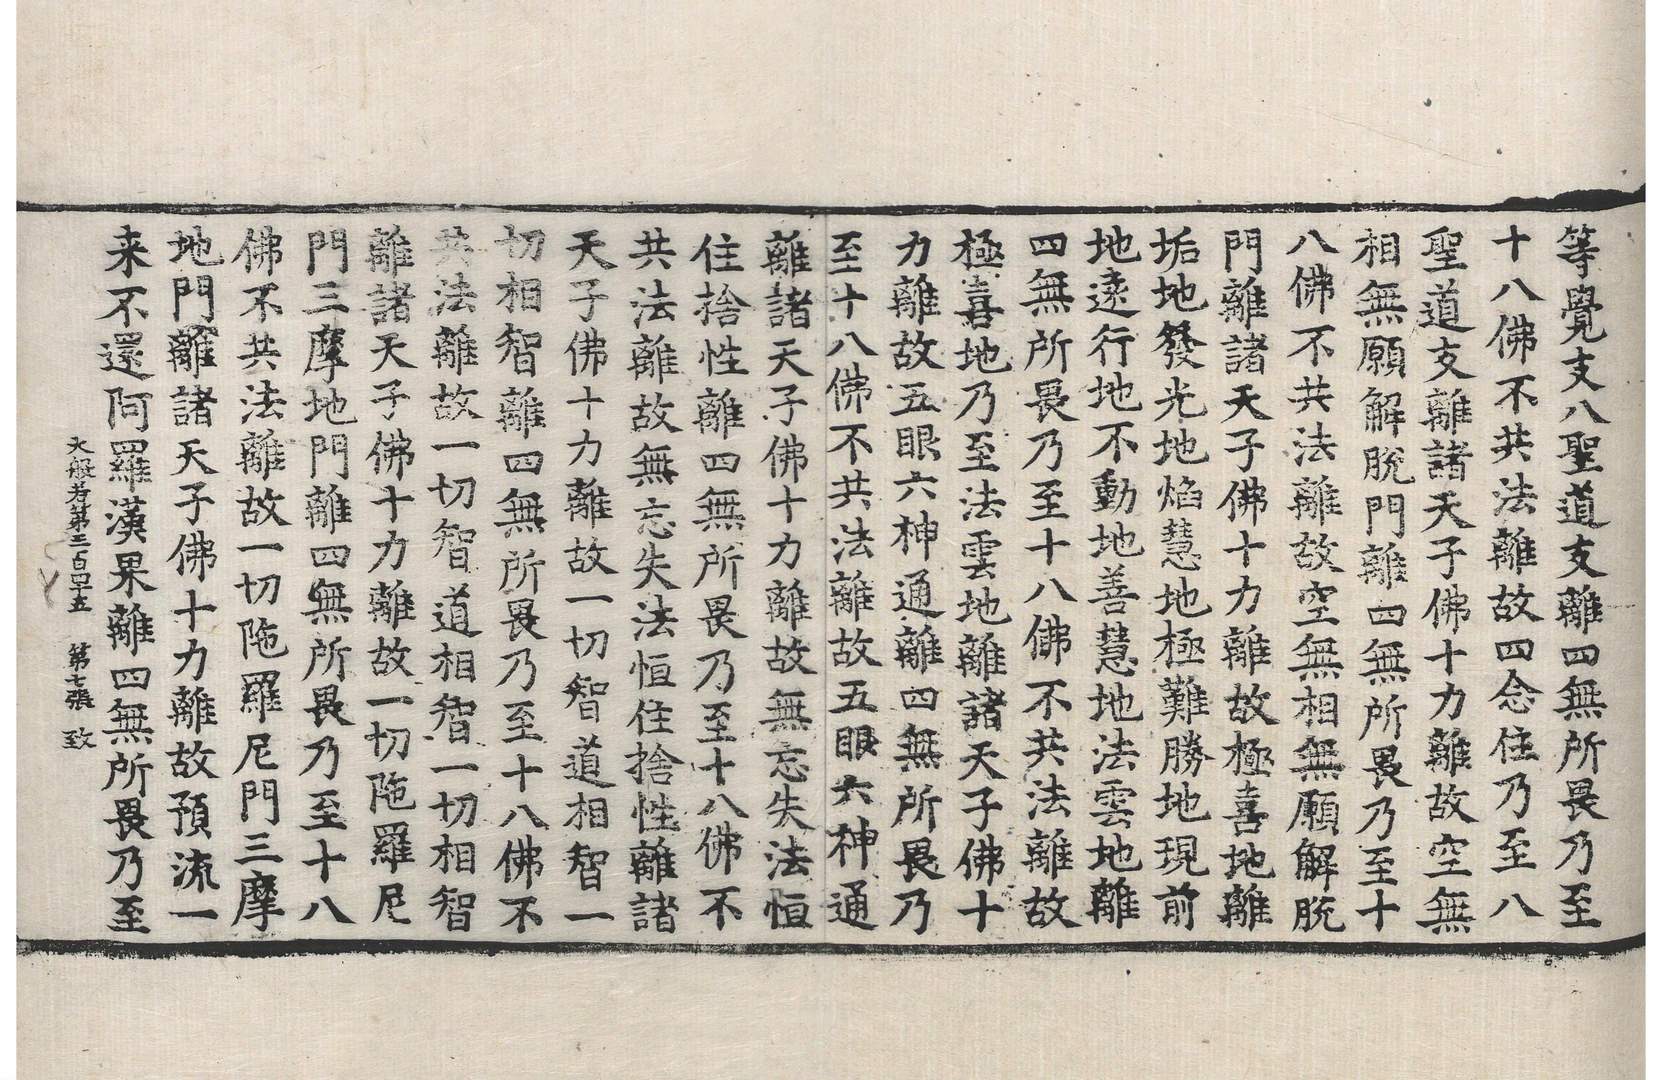 等覺支八聖道支離四無所畏乃至
十八佛不共法離故四念住乃至八
聖道支離諸天子佛十力離故空無
相無願解脫門離四無所畏乃至十
八佛不共法離故空無相無願解脫
門離諸天子佛十力離故極喜地離
垢地發光地焰慧地極難勝地現前
地遠行地不動地善慧地法雲地離
四無所畏乃至十八佛不共法離故
極喜地乃至法雲地離諸天子佛十
力離故五眼六神通離四無所畏乃
至十八佛不共法離故五眼六神通
離諸天子佛十力離故無忘失法恒
住捨性離四無所畏乃至十八佛不
共法離故無忘失法恒住捨性離諸
天子佛十力離故一切智道相智一
切相智離四無所畏乃至十八佛不
共法離故一切智道相智一切相智
離諸天子佛十力離故一切陁羅尼
門三摩地門離四無所畏乃至十八
佛不共法離故一切陁羅尼門三摩
地門離諸天子佛十力離故預流一
来不還阿羅漢果離四無所畏乃至
大般若第三百四十五 第七張 致